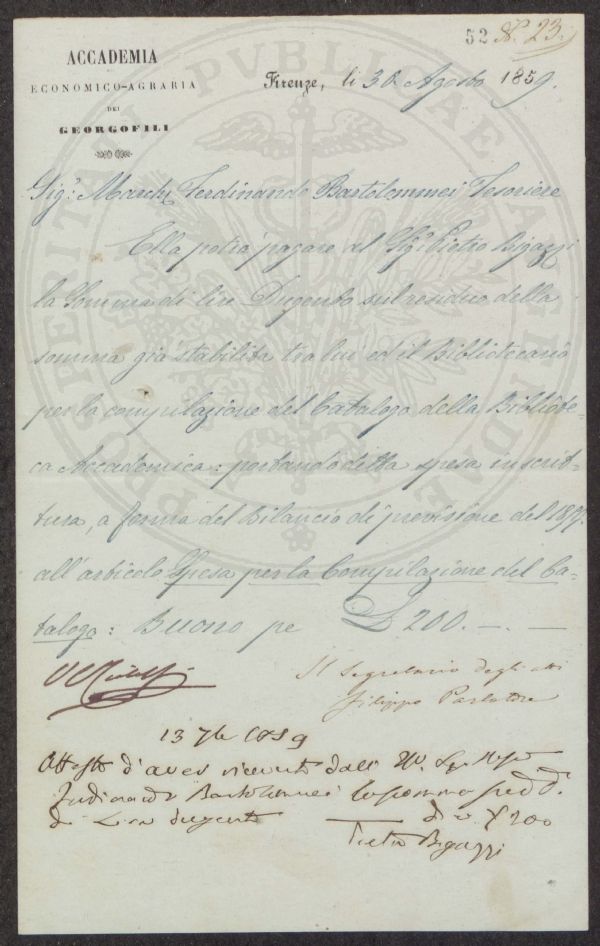 52 N. 23.
ACCADEMIA
ECONOMICO-AGRARIA
DEI
GEORGOFILI
Firenze, li 30 Agosto 1859.
PROSPERITATI PVBLICAE AVGENDAE
Sigr: March Ferdinando Bartolommei Tesoriere
Ella potrà pagare al Sigr Pietro Bigazzi
la Somma di lire Dugento sul residuo della
somma già stabilita tra lui ed il Bibliotecario
per la compilazione del Catalogo della Bibliote-
ca Accademica: portando detta spesa in scrit-
tura, a forma del Bilancio di previsione del 1859.
all'articolo Spesa per la Compilazione del Ca-
talogo: Buono pe £ 200. — . —
Il Segretario degli atti
Filippo Parlatore
13 7bre 1859
d'aver ricevuto dall'
Ferdinando Bartolommei la somma
di Lire dugento — £ 200
Pietro Bigazzi